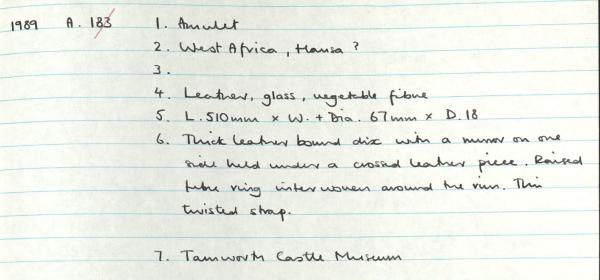 1989 A. 183 1. Amulet
2. West Africa, Hausa ?
3.
4. Leather, glass, vegetable fibre
5. L. 510mm × W. + Dia. 67mm × D. 18
6. Thick leather bound disc with a mirror on one
side held under a crossed leather piece. Raised
tube ring interwoven around the rim. Thin
twisted strap.
7. Tamworth Castle Museum